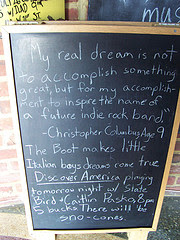 "My real dream is not
to accomplish something
great, but for my accomplish-
ment to inspire the name of
a future indie rock band."
-Christopher Columbus Age 9
The Boot makes little
Italian boys dreams come true
Discover America playing
tomorrow night w/ Slade
Bird + Caitlin Pasko, 8pm
5 bucks There will be
sno-cones.
mus